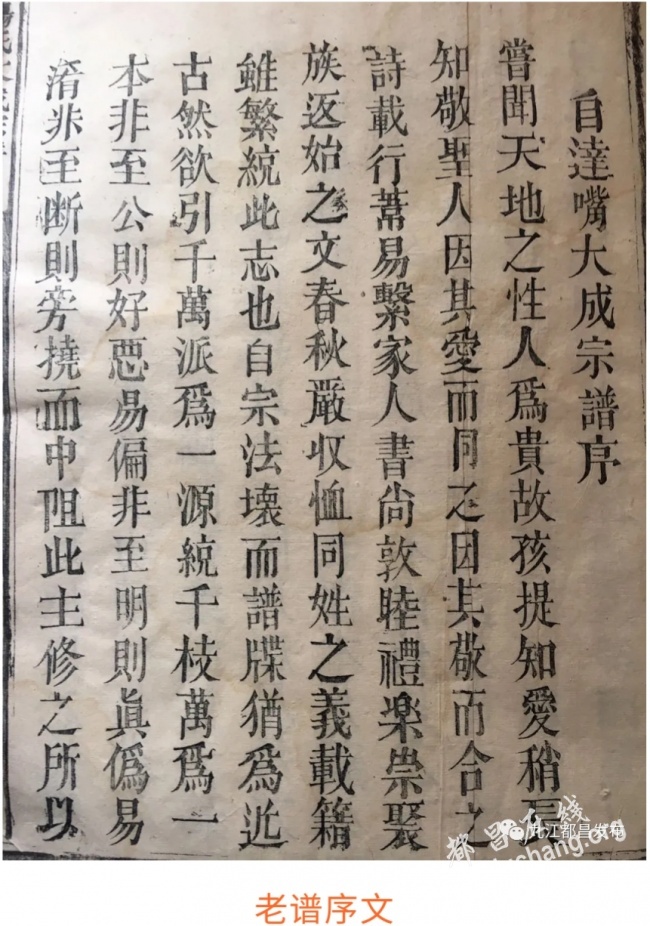 自達嘴大成宗譜序
嘗聞天地之性人爲貴故孩提知愛稍長
知敬聖人因其愛而同之因其敬而合之
詩載行葦易繫家人書尚敦睦禮楽崇聚
族返始之文春秋嚴収恤同姓之義載籍
雖繁統此志也自宗法壊而譜牒猶爲近
古然欲引千萬派爲一源統千枝萬爲一
本非至公則好惡易偏非至明則眞僞易
淆非至断則旁撓而中阻此主修之所以
九江都昌发布
都昌在线
chang.org
老谱序文